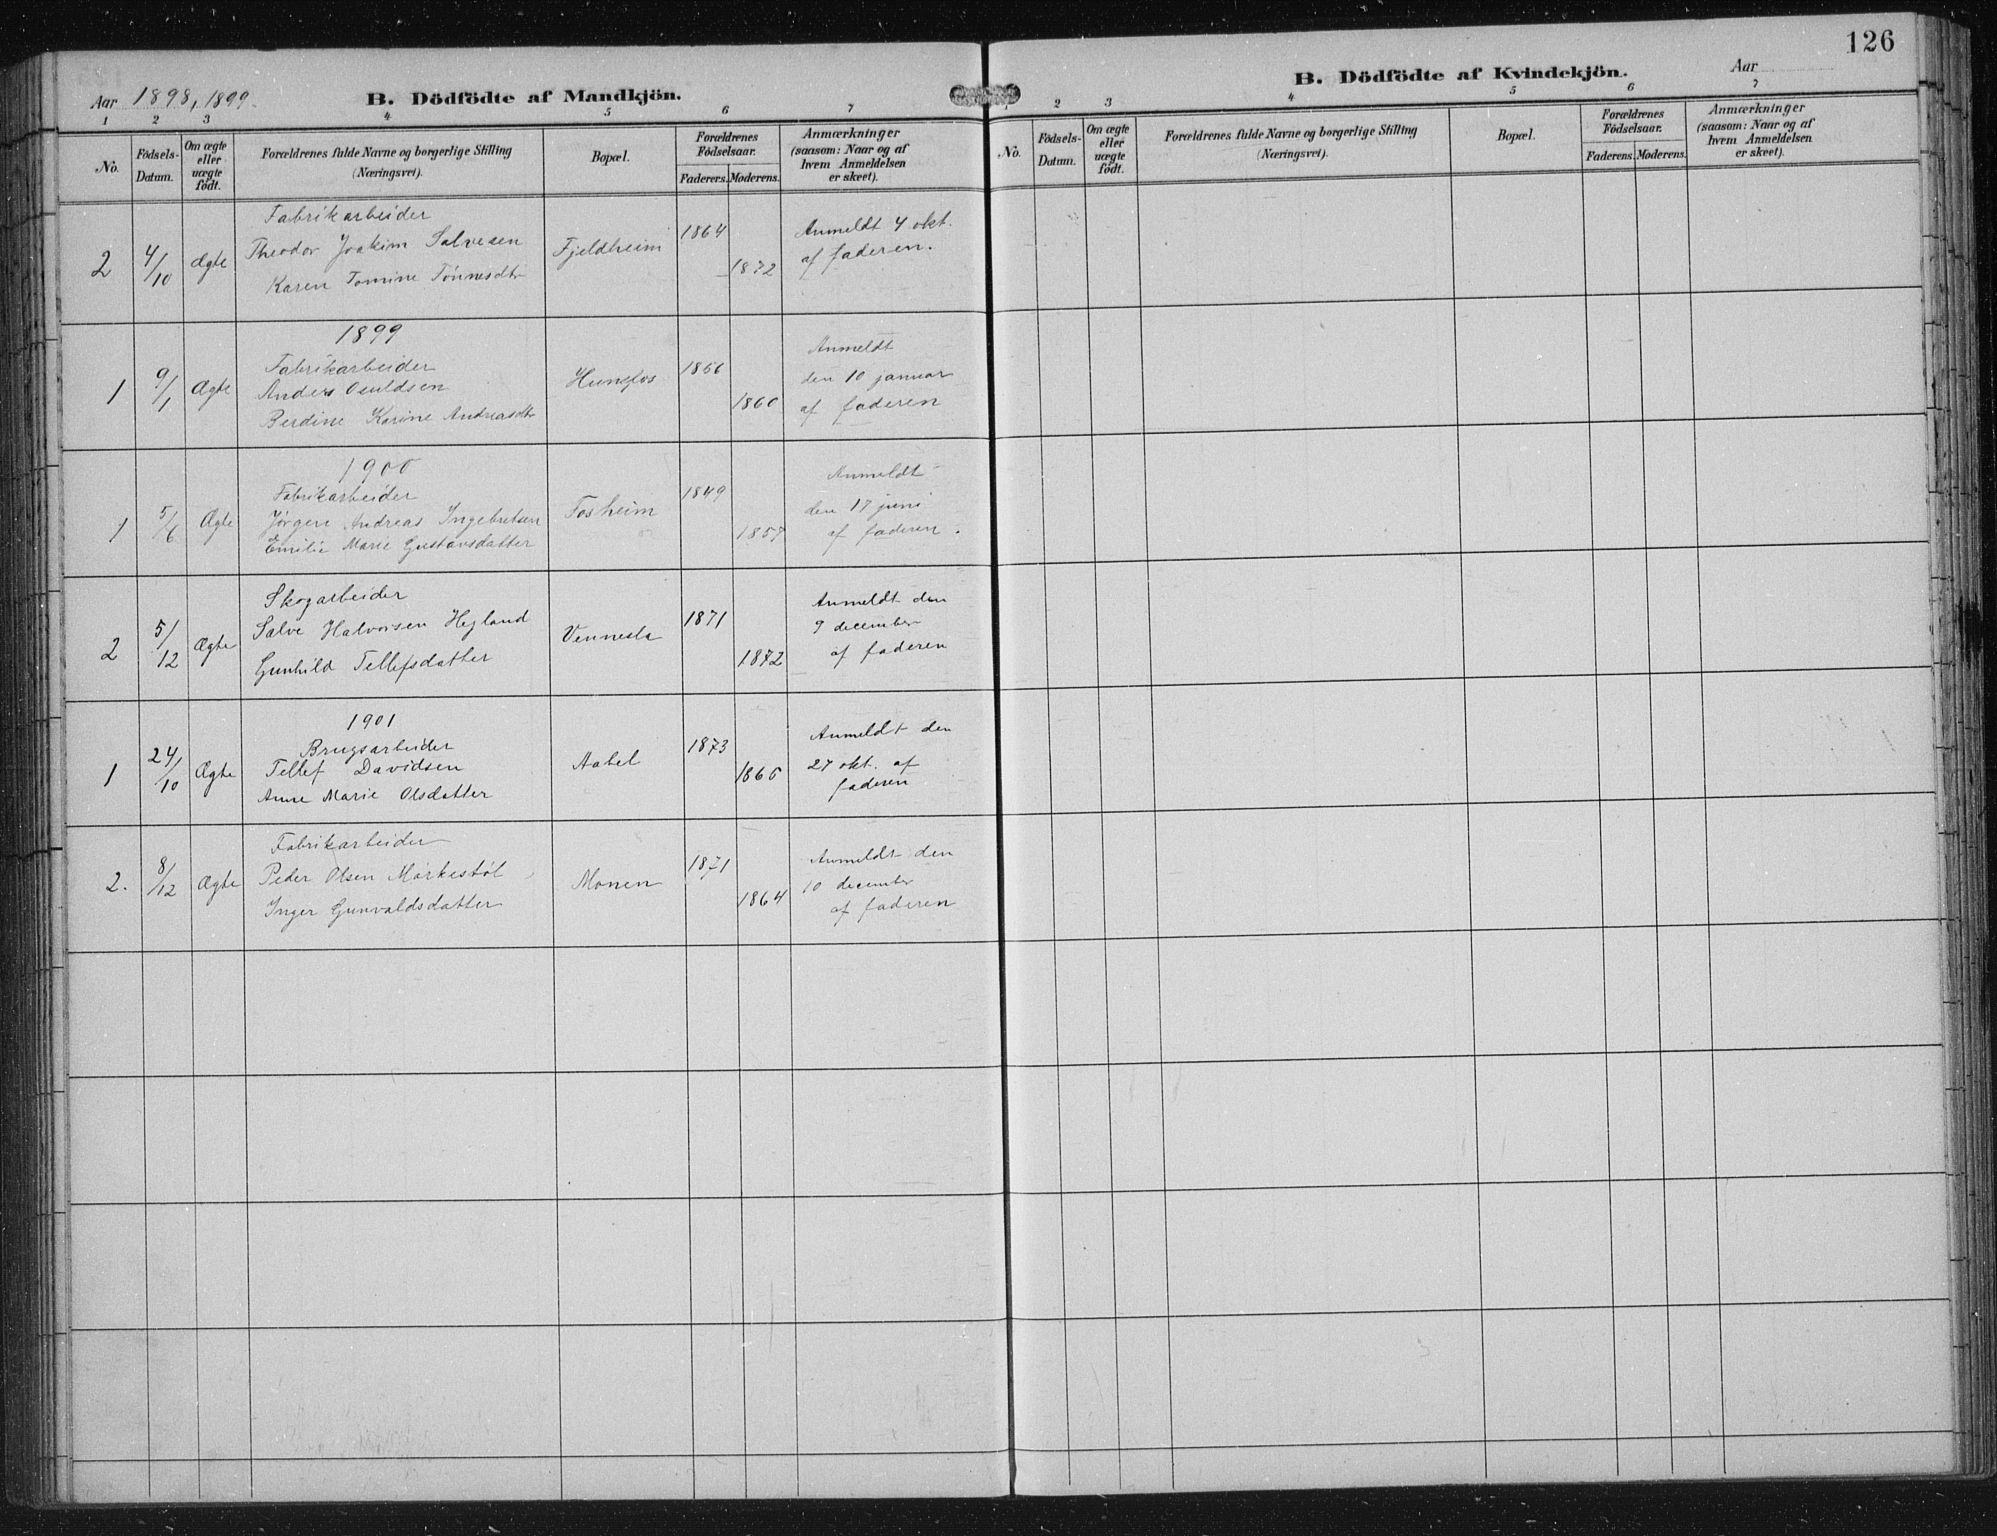 126
Aar 1898, 1899.
B. Dödfödte af Mandkjön.
1 2 3 4 5 6 7
No.
Födsels-
Datum.
Om ægte
eller
uægte
födt.
Forældrenes fulde Navne og borgerlige Stilling
(Næringsvei).
Bopæl.
Forældrenes
Födselsaar.
Faderens. Moderens.
Anmærkninger
(saasom: Naar og af
hvem Anmeldelsen
er skeet).
2 4/10 Ægte
Fabrikarbeider
Theodor Joakim Salvesen
Karen Tomine Tönnesdtr
Fjeldheim
1864
1872
Anmeldt 4 okt.
af faderen.
1899
1 9/1 Ægte
Fabrikarbeider
Anders Osuldsen
Berdine Karine Andreasdtr
Hunsfos
1866
1860
Anmeldt
den 10 januar
af faderen
1900
1 5/6 Ægte
Fabrikarbeider
Jörgen Andreas Ingebretsen
Emilie Marie Gustavsdatter
Fosheim
1849
1857
Anmeldt
den 17 juni
af faderen.
2 5/12 Ægte
Skogarbeider
Salve Halvorsen Hegland
Gunhild Tellefsdatter
Vennesla
1871
1872
Anmeldt den
9 december
af faderen
1901
1 24/10 Ægte
Brugsarbeider
Tellef Davidsen
Anne Marie Olsdatter
Aabel
1873
1865
Anmeldt den
27 okt. af
faderen
2. 8/12 Ægte
Fabrikarbeider
Peder Olsen Mörkestöl
Inger Gunvaldsdatter
Monen
1871
1864
Anmeldt den
10 december
af faderen
B. Dödfödte af Kvindekjön.
Aar
1 2 3 4 5 6 7
No.
Födsels-
Datum.
Om ægte
eller
uægte
födt.
Forældrenes fulde Navne og borgerlige Stilling
(Næringsvei).
Bopæl.
Forældrenes
Födselsaar.
Faderens. Moderens.
Anmærkninger
(saasom: Naar og af
hvem Anmeldelsen
er skeet).